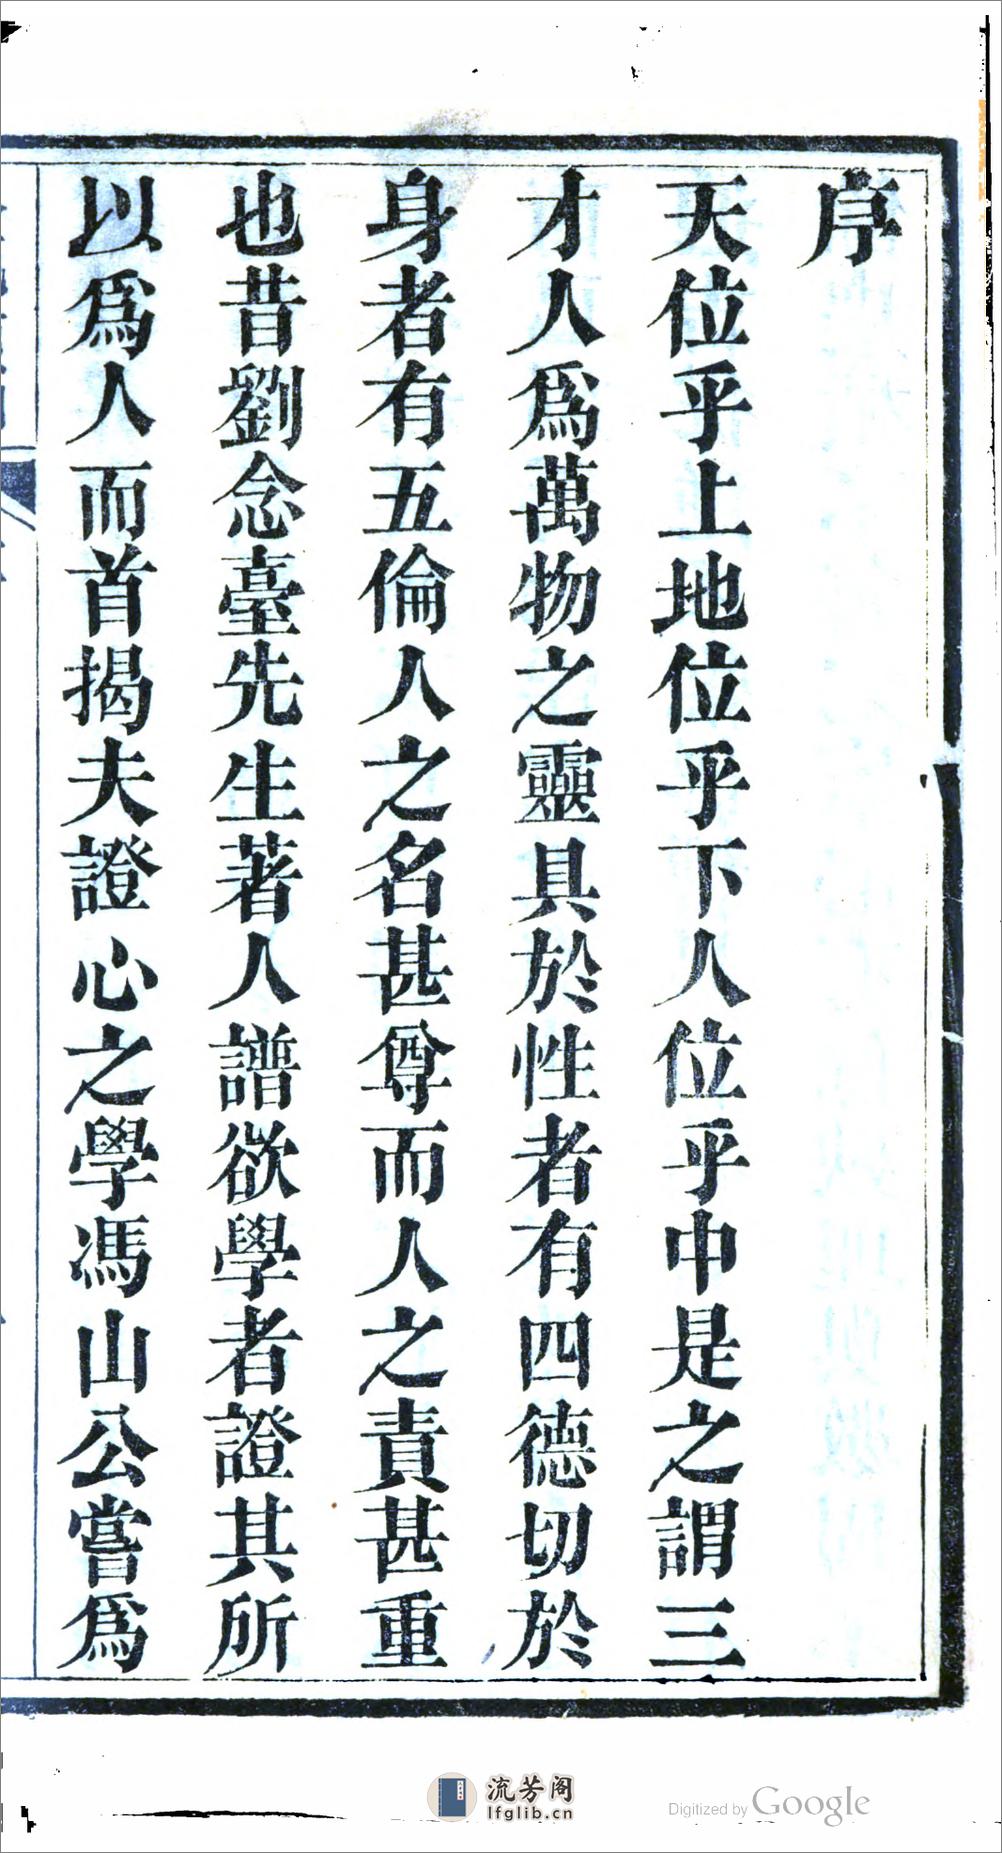 序
天位乎上地位乎下人位乎中是之謂三
才人爲萬物之靈具於性者有四德切於
身者有五倫人之名甚尊而人之責甚重
也昔劉念臺先生著人譜欲學者證其所
以爲人而首揭夫證心之學馮山公嘗爲
流芳阁
lfglib.cn
Digitized by Google